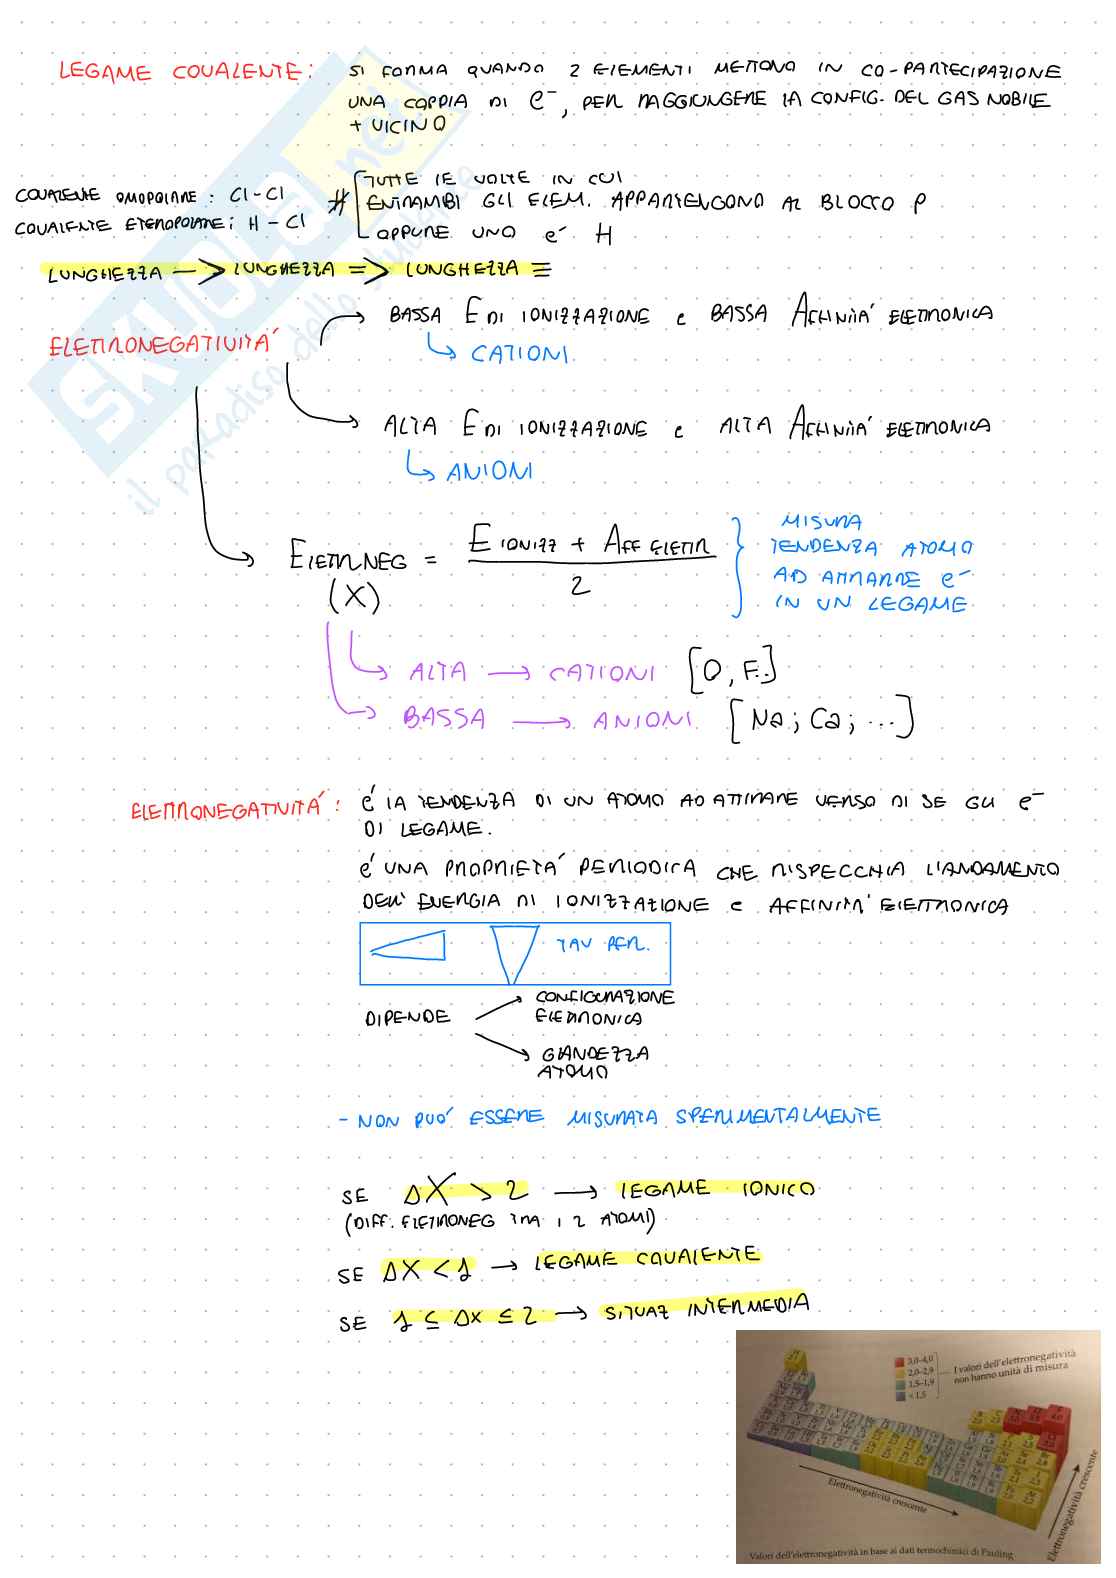 LEGAME COVALENTE: SI FORMA QUANDO 2 ELEMENTI METTONO IN CO-PARTECIPAZIONE
UNA COPPIA DI e⁻, PER RAGGIUNGERE LA CONFIG. DEL GAS NOBILE
+ VICINO
COVALENTE OMOPOLARE: Cl-Cl
COVALENTE ETEROPOLARE: H-Cl
# TUTTE LE VOLTE IN CUI
ENTRAMBI GLI ELEM. APPARTENGONO AL BLOCCO P
OPPURE UNO è H
LUNGHEZZA — > LUNGHEZZA = > LUNGHEZZA ≡
ELETTRONEGATIVITÀ
BASSA E DI IONIZZAZIONE e BASSA AFFINITÀ ELETTRONICA
↳ CATIONI
ALTA E DI IONIZZAZIONE e ALTA AFFINITÀ ELETTRONICA
↳ ANIONI
ELETTR.NEG = E IONIZZ + AFF ELETTR
2
(X)
MISURA
TENDENZA ATOMO
AD ATTRARRE e⁻
IN UN LEGAME
ALTA → CATIONI [O, F..]
BASSA → ANIONI [Na; Ca; ...]
ELETTRONEGATIVITÀ: è LA TENDENZA DI UN ATOMO AD ATTIRARE VERSO DI SE GLI e⁻
DI LEGAME.
è UNA PROPRIETÀ PERIODICA CHE RISPECCHIA L'ANDAMENTO
DELL'ENERGIA DI IONIZZAZIONE e AFFINITÀ ELETTRONICA
TAV PER.
DIPENDE
CONFIGURAZIONE
ELETTRONICA
GRANDEZZA
ATOMO
- NON PUÒ ESSERE MISURATA SPERIMENTALMENTE
SE ΔX > 2 → LEGAME IONICO
(DIFF. ELETTRONEG TRA I 2 ATOMI)
SE ΔX < 1 → LEGAME COVALENTE
SE 1 ≤ Δx ≤ 2 → SITUAZ INTERMEDIA
3,0–4,0
2,0–2,9
1,5–1,9
< 1,5
I valori dell'elettronegatività
non hanno unità di misura
Elettronegatività crescente
Elettronegatività crescente
Valori dell'elettronegatività in base ai dati termochimici di Pauling
SKUOLA.net
il paradiso dello studente